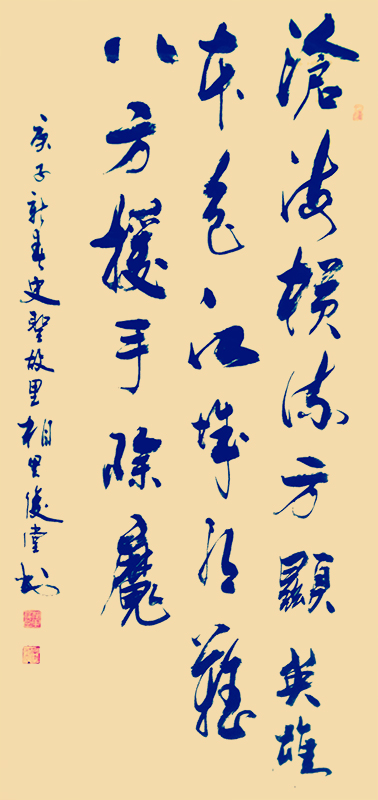 滄海横流方顯英雄
本色江城有難
八方援手除魔
庚子新春史聖故里相里俊堂书